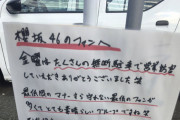 櫻坂46のファンへ
金曜はたくさんの無断駐車で営業妨害
していただきありがとうございました 笑
最低限のマナーすら守れない最低のファンが
多くてとても素晴らしいグループですね 笑